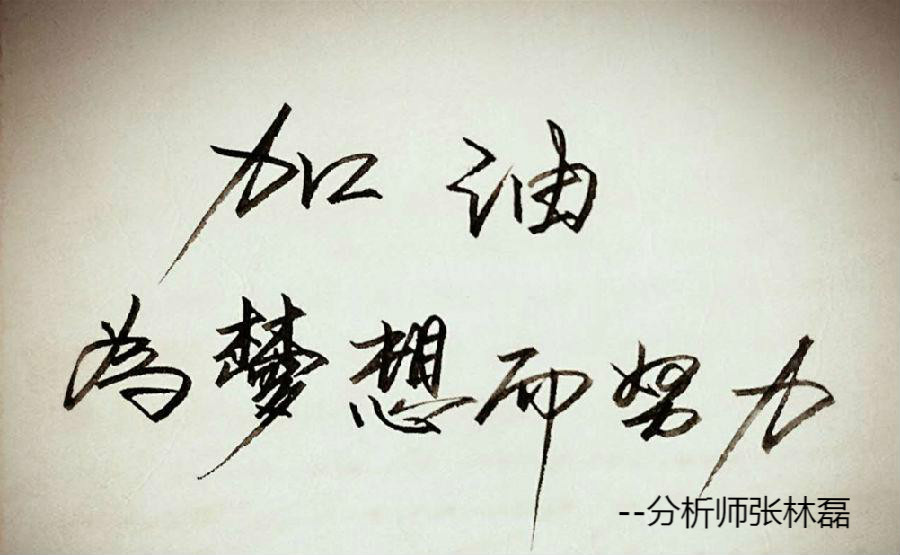 加油
为梦想而努力
--分析师张林磊